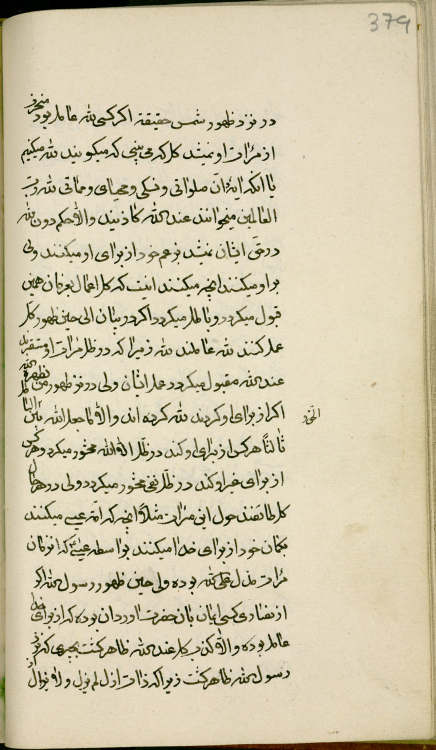 379
در نزد ظهور شمس حقیقة اگر کسی لله عامل بود منحرف
از مرات او نمیشد کل که می بینی که میگویند لله میکنیم
یا آنکه آیه ان صلواتی و نسکی و محیای و مماتی لله رب
العالمین میخوانند عند الله کاذبند والا حکم دون لله
در حق ایشان نمیشد بزعم خود از برای او میکنند ولی
بر او میکنند آنچه میکنند اینست که کل اعمال بعرفان همین
قبول میگردد و باطل میگردد اگر در بیان الی حین ظهور کل
عمل کنند لله عاملند لله زیرا که در ظل مرات او مستقبل
عند الله مقبول میگردد عمل ایشان ولی در نزد ظهور من یظهره الله
اگر از برای او کردند لله کرده اند والا ما جعل الله
ثالثاً هر کس از برای او کند در ظل الا الله محشور میگردد و هر کس
از برای غیر او کند در ظل نفی محشور میگردد ولی در هر حال
کل طائفند حول این مرات مثلاً آنچه که امة عیسی میکنند
بگمان خود از برای خدا میکنند بواسطه عیسی که آن زمان
مرات یدل علی الله بوده ولی حین ظهور رسول الله اگر
از نصاری کسی ایمان بان حضرت آورد آن بوده که از برای خدا
عامل بوده والا کذب کل عند الله ظاهر گشت بحدی که نزد
رسول الله ظاهر گشت زیرا که ذات ازل لم یزل و لا یزال